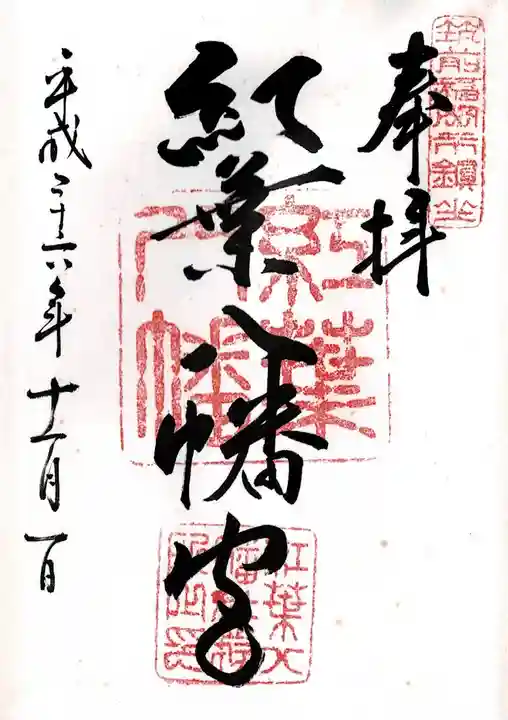 筑前福岡市鎮坐
奉拝
紅葉八幡宮
紅葉
八幡
紅葉八
平成二十六年十一月一日